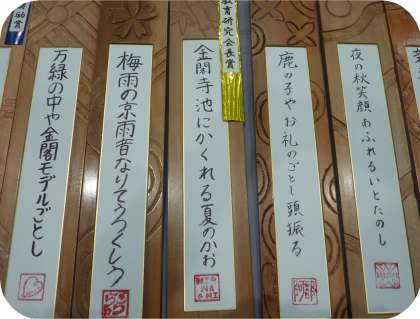 夜の秋笑顔あふれるいとたのし
鹿の子やお礼のごとし頭振る
教育研究会長賞
金閣寺池にかくれる夏のかお
梅雨の京雨音なりてうつくしく
万緑の中や金閣モデルごとし
励賞